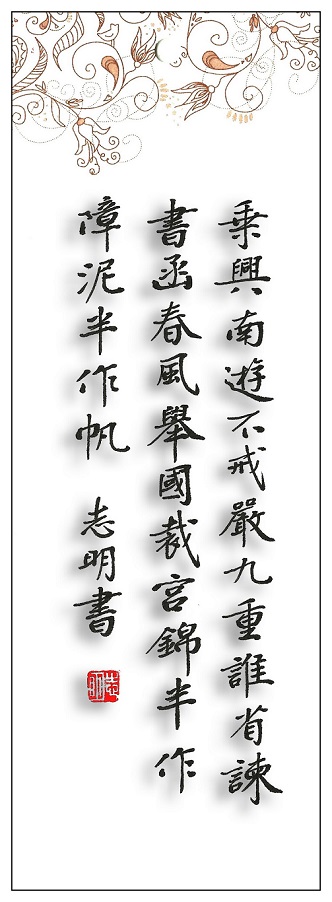 乘興南遊不戒嚴九重誰省諫
書函春風舉國裁宮錦半作
障泥半作帆
志明書
志明